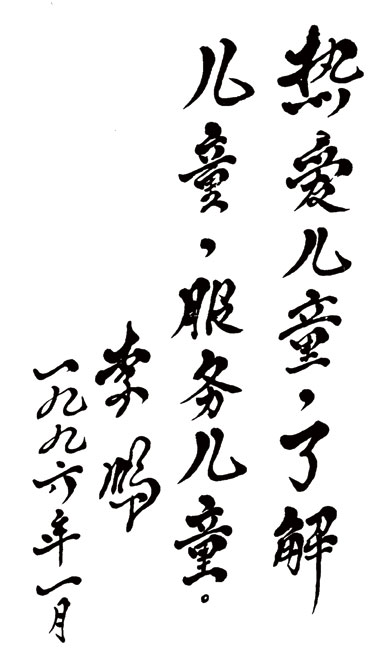 热爱儿童，了解
儿童，服务儿童。
李鹏
一九九六年一月